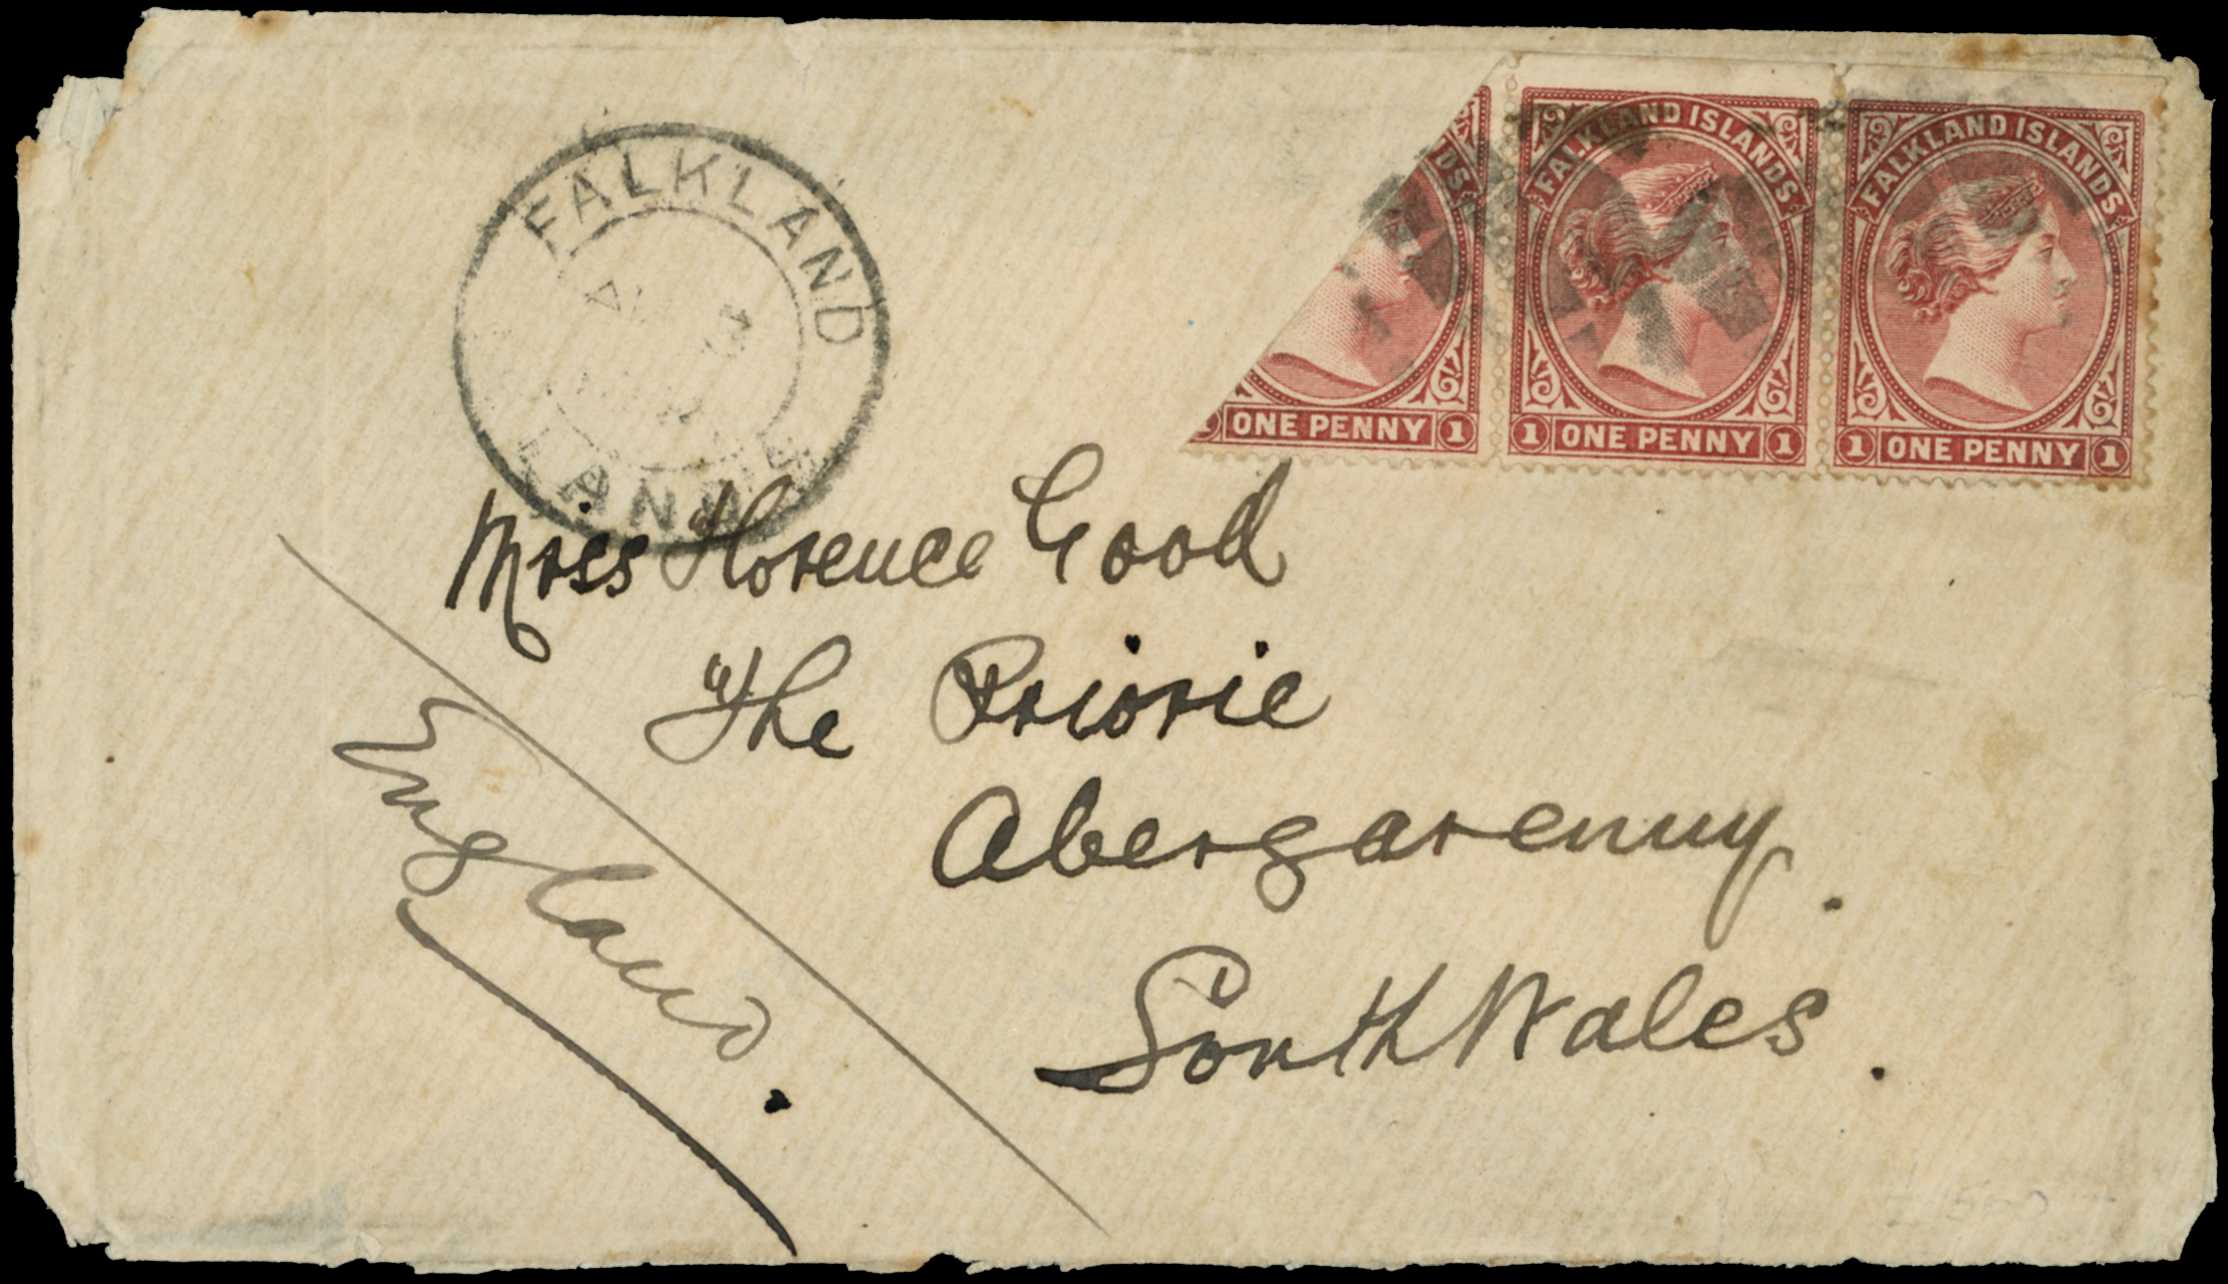 FALKLAND
DS
ONE PENNY 1
FALKLAND ISLANDS
1 ONE PENNY 1
FALKLAND ISLANDS
1 ONE PENNY 1
Miss Florence Good
The Priorie
Abergarenny.
South Wales.
England.